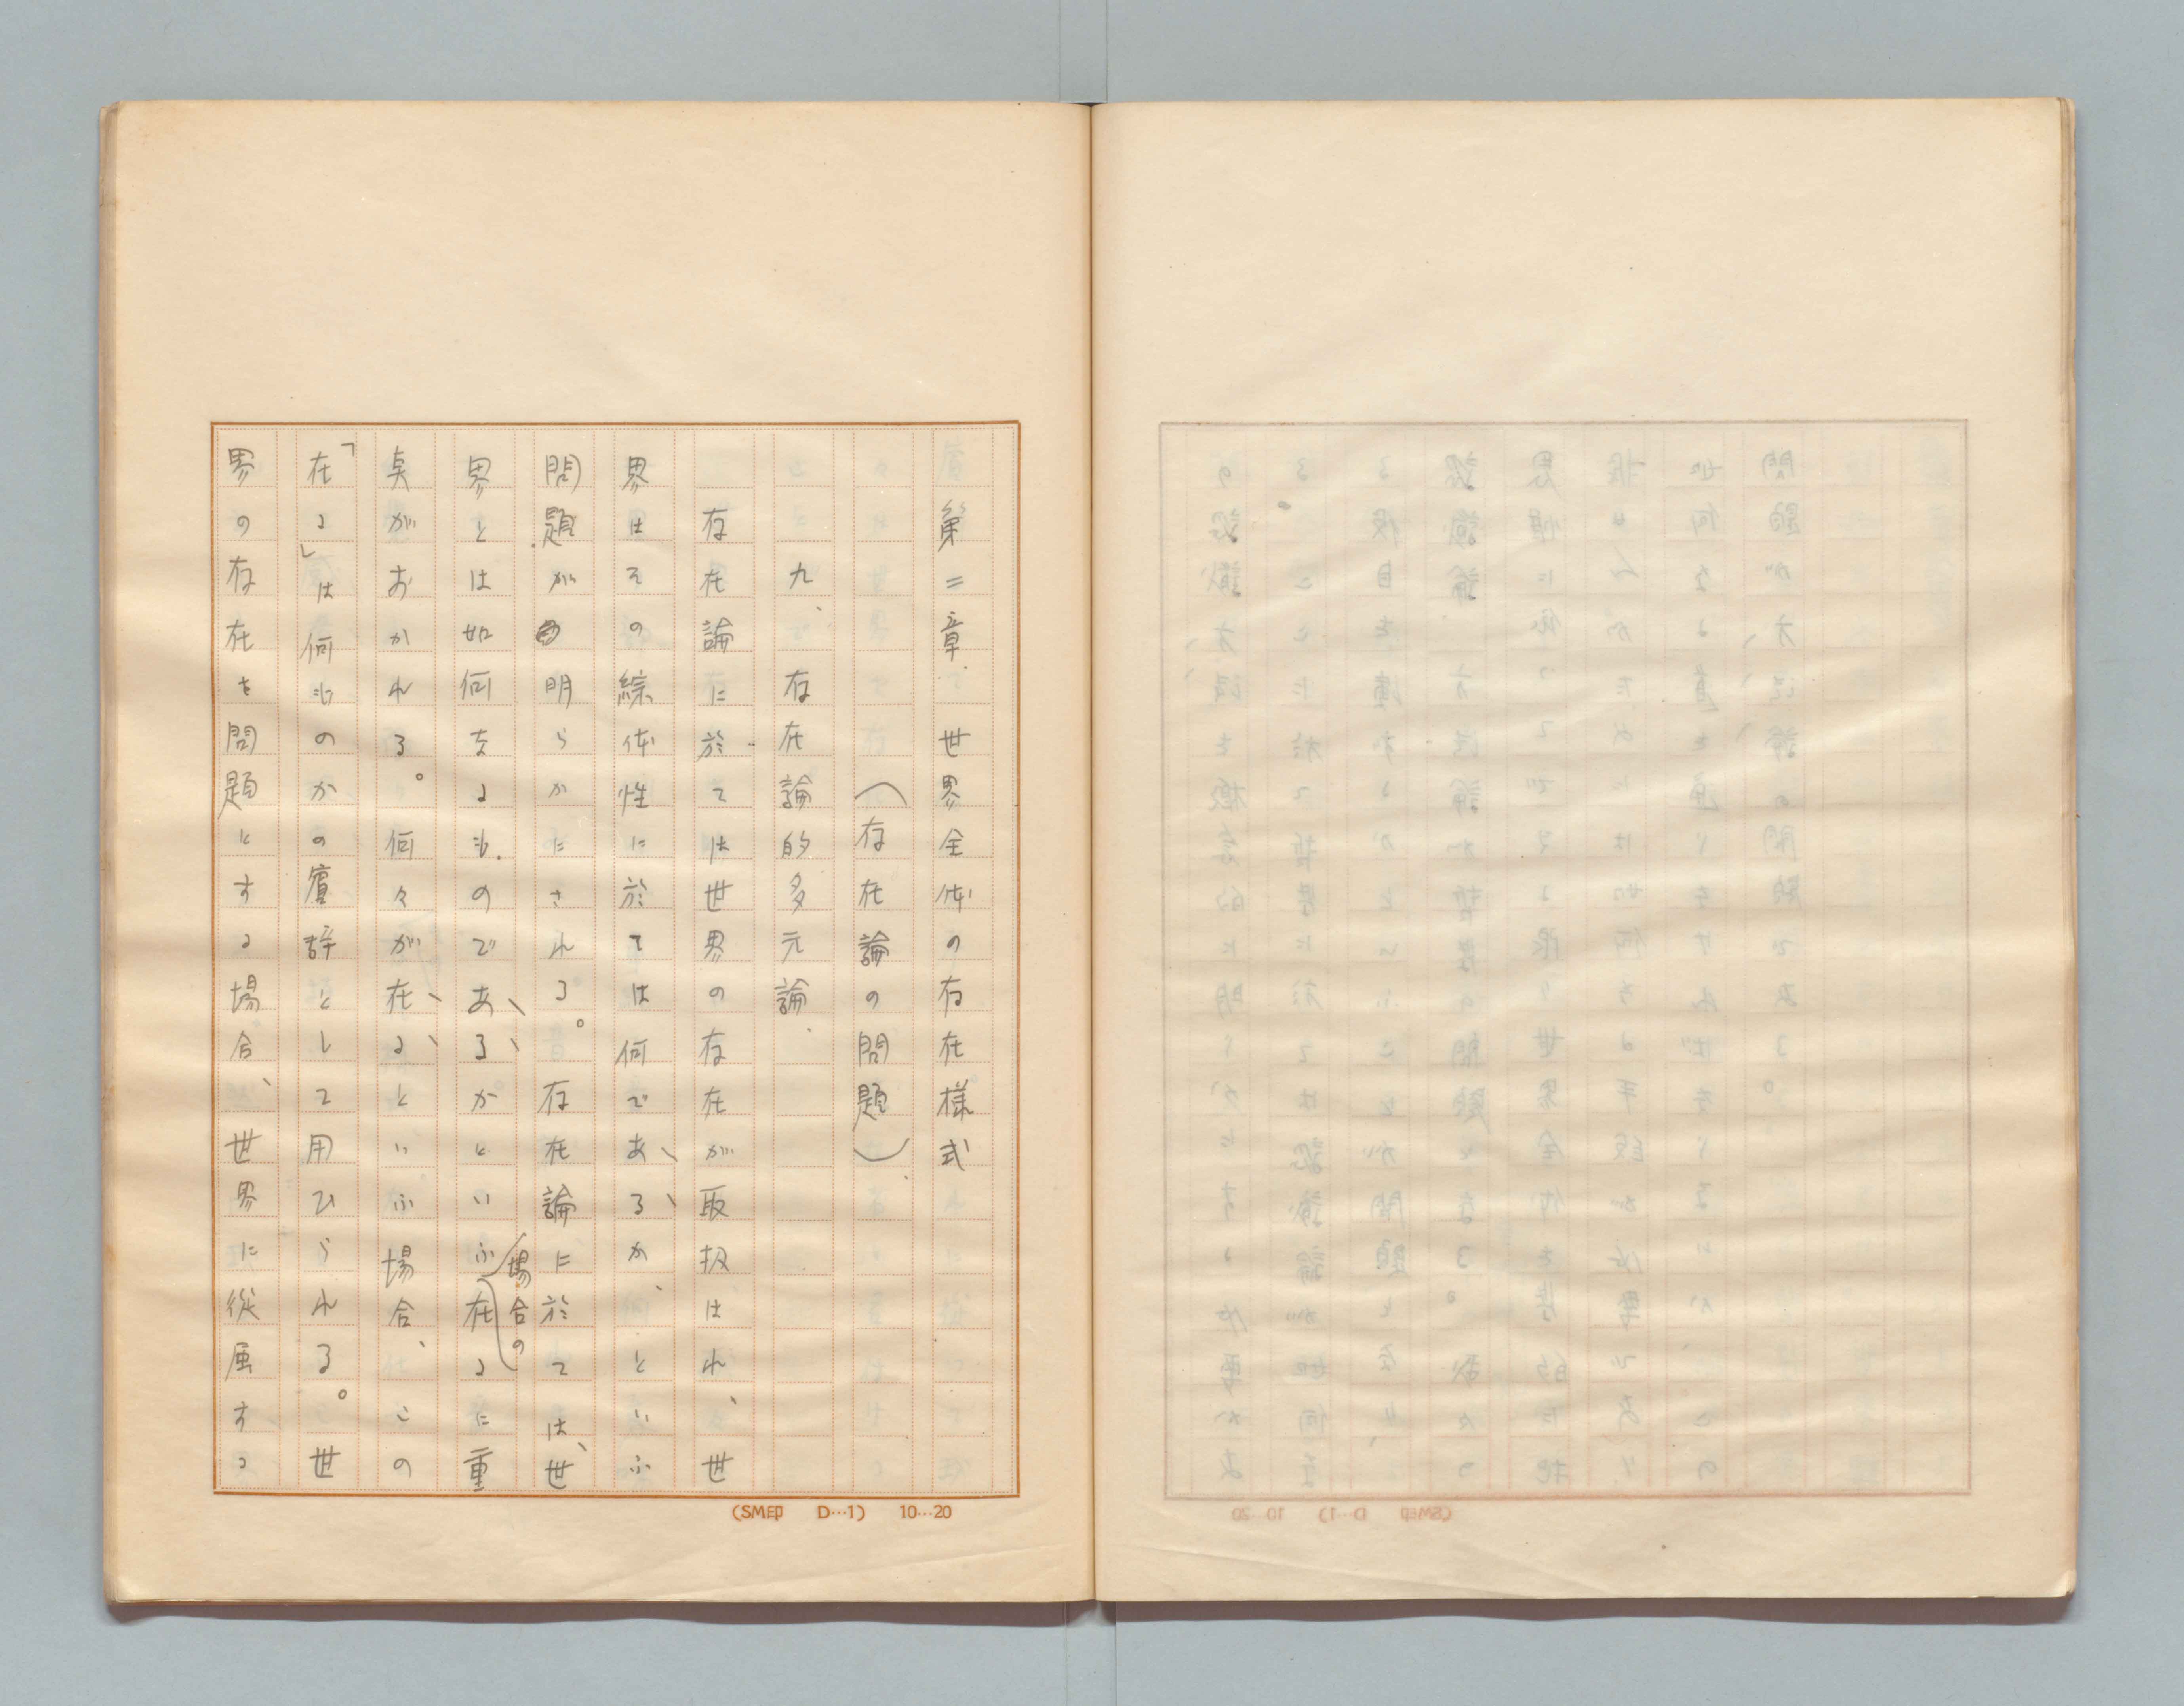 第二章 世界全体の存在様式
(存在論の問題)
九、存在論的多元論
存在論に於ては世界の存在が取扱はれ、世
界はその綜体性に於ては何であるか、といふ
問題が明らかにされる。存在論に於ては、世
界とは如何なるものであるかといふ場合の在るに重
点がおかれる。何々が在るといふ場合、この
「在る」は何ものかの賓辞として用ひられる。世
界の存在を問題とする場合、世界に従属する
(SM印 D…1) 10…20